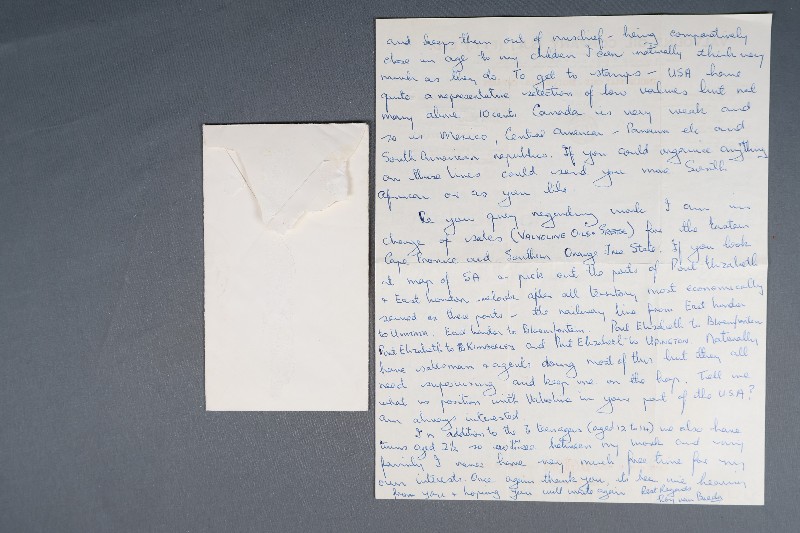 and keeps them out of mischief - being comparatively
close in age to my children I can naturally think very
much as they do. To get to stamps - USA have
quite a representative selection of low values but not
many above 10 cents Canada is very weak and
so is Mexico, Central American - Panama etc and
South American republics. If you could organise anything
on these lines could send you more South
African or as you like
Re your query regarding work I am in
charge of sales (VALVOLINE OIL & GREASE) for the Eastern
Cape Province and Southern Orange Free State. If you look
at map of SA & pick out the ports of Port Elizabeth
& East London we look after all territory most economically
served ex these ports - the railway line from East London
to UMTATA. East London to Bloemfontein. Port Elizabeth to Bloemfontein
Port Elizabeth to KIMBERLEY and Port Elizabeth to UPINGTON Naturally
have salesmen & agents doing most of this but they all
need supervising and keep me on the hop. Tell me
what is position with Valvoline in your part of the USA?
am always interested
In addition to the teenagers (aged 12 to 14) we also have
twins aged 2½ so between my work and my
family I never have very much free time for my
own interests. Once again thank you, its been nice hearing
from you & hoping you will write again Best Regards
Roy van